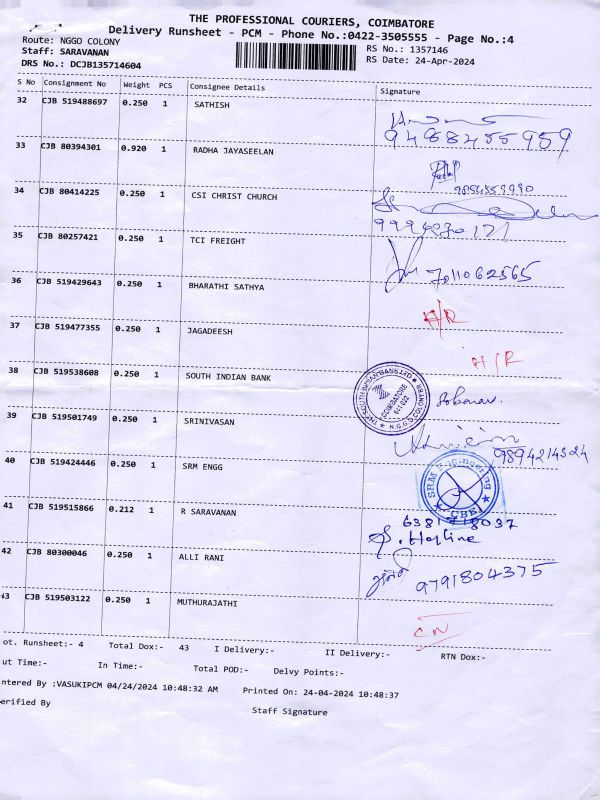 THE PROFESSIONAL COURIERS, COIMBATORE
Delivery Runsheet - PCM - Phone No.:0422-3505555 - Page No.:4
Route: NGGO COLONY
RS No.: 1357146
Staff: SARAVANAN
RS Date: 24-Apr-2024
DRS No.: DCJB135714604
S No Consignment No Weight PCS Consignee Details Signature
32 CJB 519488697 0.250 1 SATHISH
9488455959
33 CJB 80394301 0.920 1 RADHA JAYASEELAN
34 CJB 80414225 0.250 1 CSI CHRIST CHURCH
35 CJB 80257421 0.250 1 TCI FREIGHT
7011062565
36 CJB 519429643 0.250 1 BHARATHI SATHYA
A/R
37 CJB 519477355 0.250 1 JAGADEESH
A/R
38 CJB 519538608 0.250 1 SOUTH INDIAN BANK
COIMBATORE
641 022
39 CJB 519501749 0.250 1 SRINIVASAN
9894214324
40 CJB 519424446 0.250 1 SRM ENGG
CBE
41 CJB 519515866 0.212 1 R SARAVANAN
42 CJB 80300046 0.250 1 ALLI RANI
9791804375
43 CJB 519503122 0.250 1 MUTHURAJATHI
CN
ot. Runsheet:- 4 Total Dox:- 43 I Delivery:- II Delivery:- RTN Dox:-
ut Time:- In Time:- Total POD:- Delvy Points:-
ntered By :VASUKIPCM 04/24/2024 10:48:32 AM Printed On: 24-04-2024 10:48:37
erified By Staff Signature